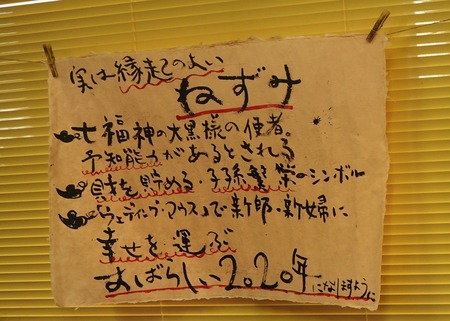 実は縁起のよい
ねずみ
七福神の大黒様の使者。
予知能力があるとされる
財を貯める・子孫繁栄のシンボル
「ウェディング・マウス」で新郎・新婦に
幸せを運ぶ
すばらしい2020年
になりますように